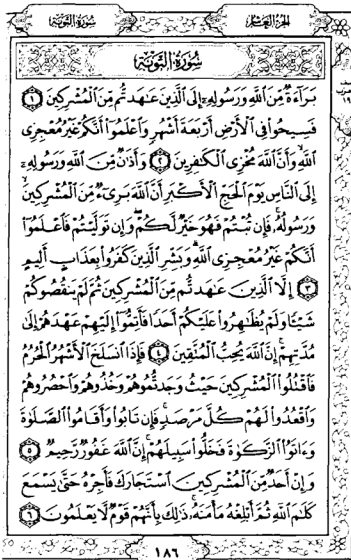 سُورَةُ التَّوْبَةِ الجُزْءُ العَاشِرُ
سُورَةُ التَّوْبَةِ
بَرَآءَةٌ مِّنَ ٱللَّهِ وَرَسُولِهِۦٓ إِلَى ٱلَّذِينَ عَٰهَدتُّم مِّنَ ٱلْمُشْرِكِينَ ١
فَسِيحُوا۟ فِى ٱلْأَرْضِ أَرْبَعَةَ أَشْهُرٍ وَٱعْلَمُوٓا۟ أَنَّكُمْ غَيْرُ مُعْجِزِى
ٱللَّهِ وَأَنَّ ٱللَّهَ مُخْزِى ٱلْكَٰفِرِينَ ٢ وَأَذَٰنٌ مِّنَ ٱللَّهِ وَرَسُولِهِۦٓ
إِلَى ٱلنَّاسِ يَوْمَ ٱلْحَجِّ ٱلْأَكْبَرِ أَنَّ ٱللَّهَ بَرِىٓءٌ مِّنَ ٱلْمُشْرِكِينَ
وَرَسُولُهُۥ فَإِن تُبْتُمْ فَهُوَ خَيْرٌ لَّكُمْ وَإِن تَوَلَّيْتُمْ فَٱعْلَمُوٓا۟
أَنَّكُمْ غَيْرُ مُعْجِزِى ٱللَّهِ وَبَشِّرِ ٱلَّذِينَ كَفَرُوا۟ بِعَذَابٍ أَلِيمٍ
٣ إِلَّا ٱلَّذِينَ عَٰهَدتُّم مِّنَ ٱلْمُشْرِكِينَ ثُمَّ لَمْ يَنقُصُوكُمْ
شَيْـًٔا وَلَمْ يُظَٰهِرُوا۟ عَلَيْكُمْ أَحَدًا فَأَتِمُّوٓا۟ إِلَيْهِمْ عَهْدَهُمْ إِلَىٰ
مُدَّتِهِمْ إِنَّ ٱللَّهَ يُحِبُّ ٱلْمُتَّقِينَ ٤ فَإِذَا ٱنسَلَخَ ٱلْأَشْهُرُ ٱلْحُرُمُ
فَٱقْتُلُوا۟ ٱلْمُشْرِكِينَ حَيْثُ وَجَدتُّمُوهُمْ وَخُذُوهُمْ وَٱحْصُرُوهُمْ
وَٱقْعُدُوا۟ لَهُمْ كُلَّ مَرْصَدٍ فَإِن تَابُوا۟ وَأَقَامُوا۟ ٱلصَّلَوٰةَ
وَءَاتَوُا۟ ٱلزَّكَوٰةَ فَخَلُّوا۟ سَبِيلَهُمْ إِنَّ ٱللَّهَ غَفُورٌ رَّحِيمٌ ٥
وَإِنْ أَحَدٌ مِّنَ ٱلْمُشْرِكِينَ ٱسْتَجَارَكَ فَأَجِرْهُ حَتَّىٰ يَسْمَعَ
كَلَٰمَ ٱللَّهِ ثُمَّ أَبْلِغْهُ مَأْمَنَهُۥ ذَٰلِكَ بِأَنَّهُمْ قَوْمٌ لَّا يَعْلَمُونَ ٦
١٨٦